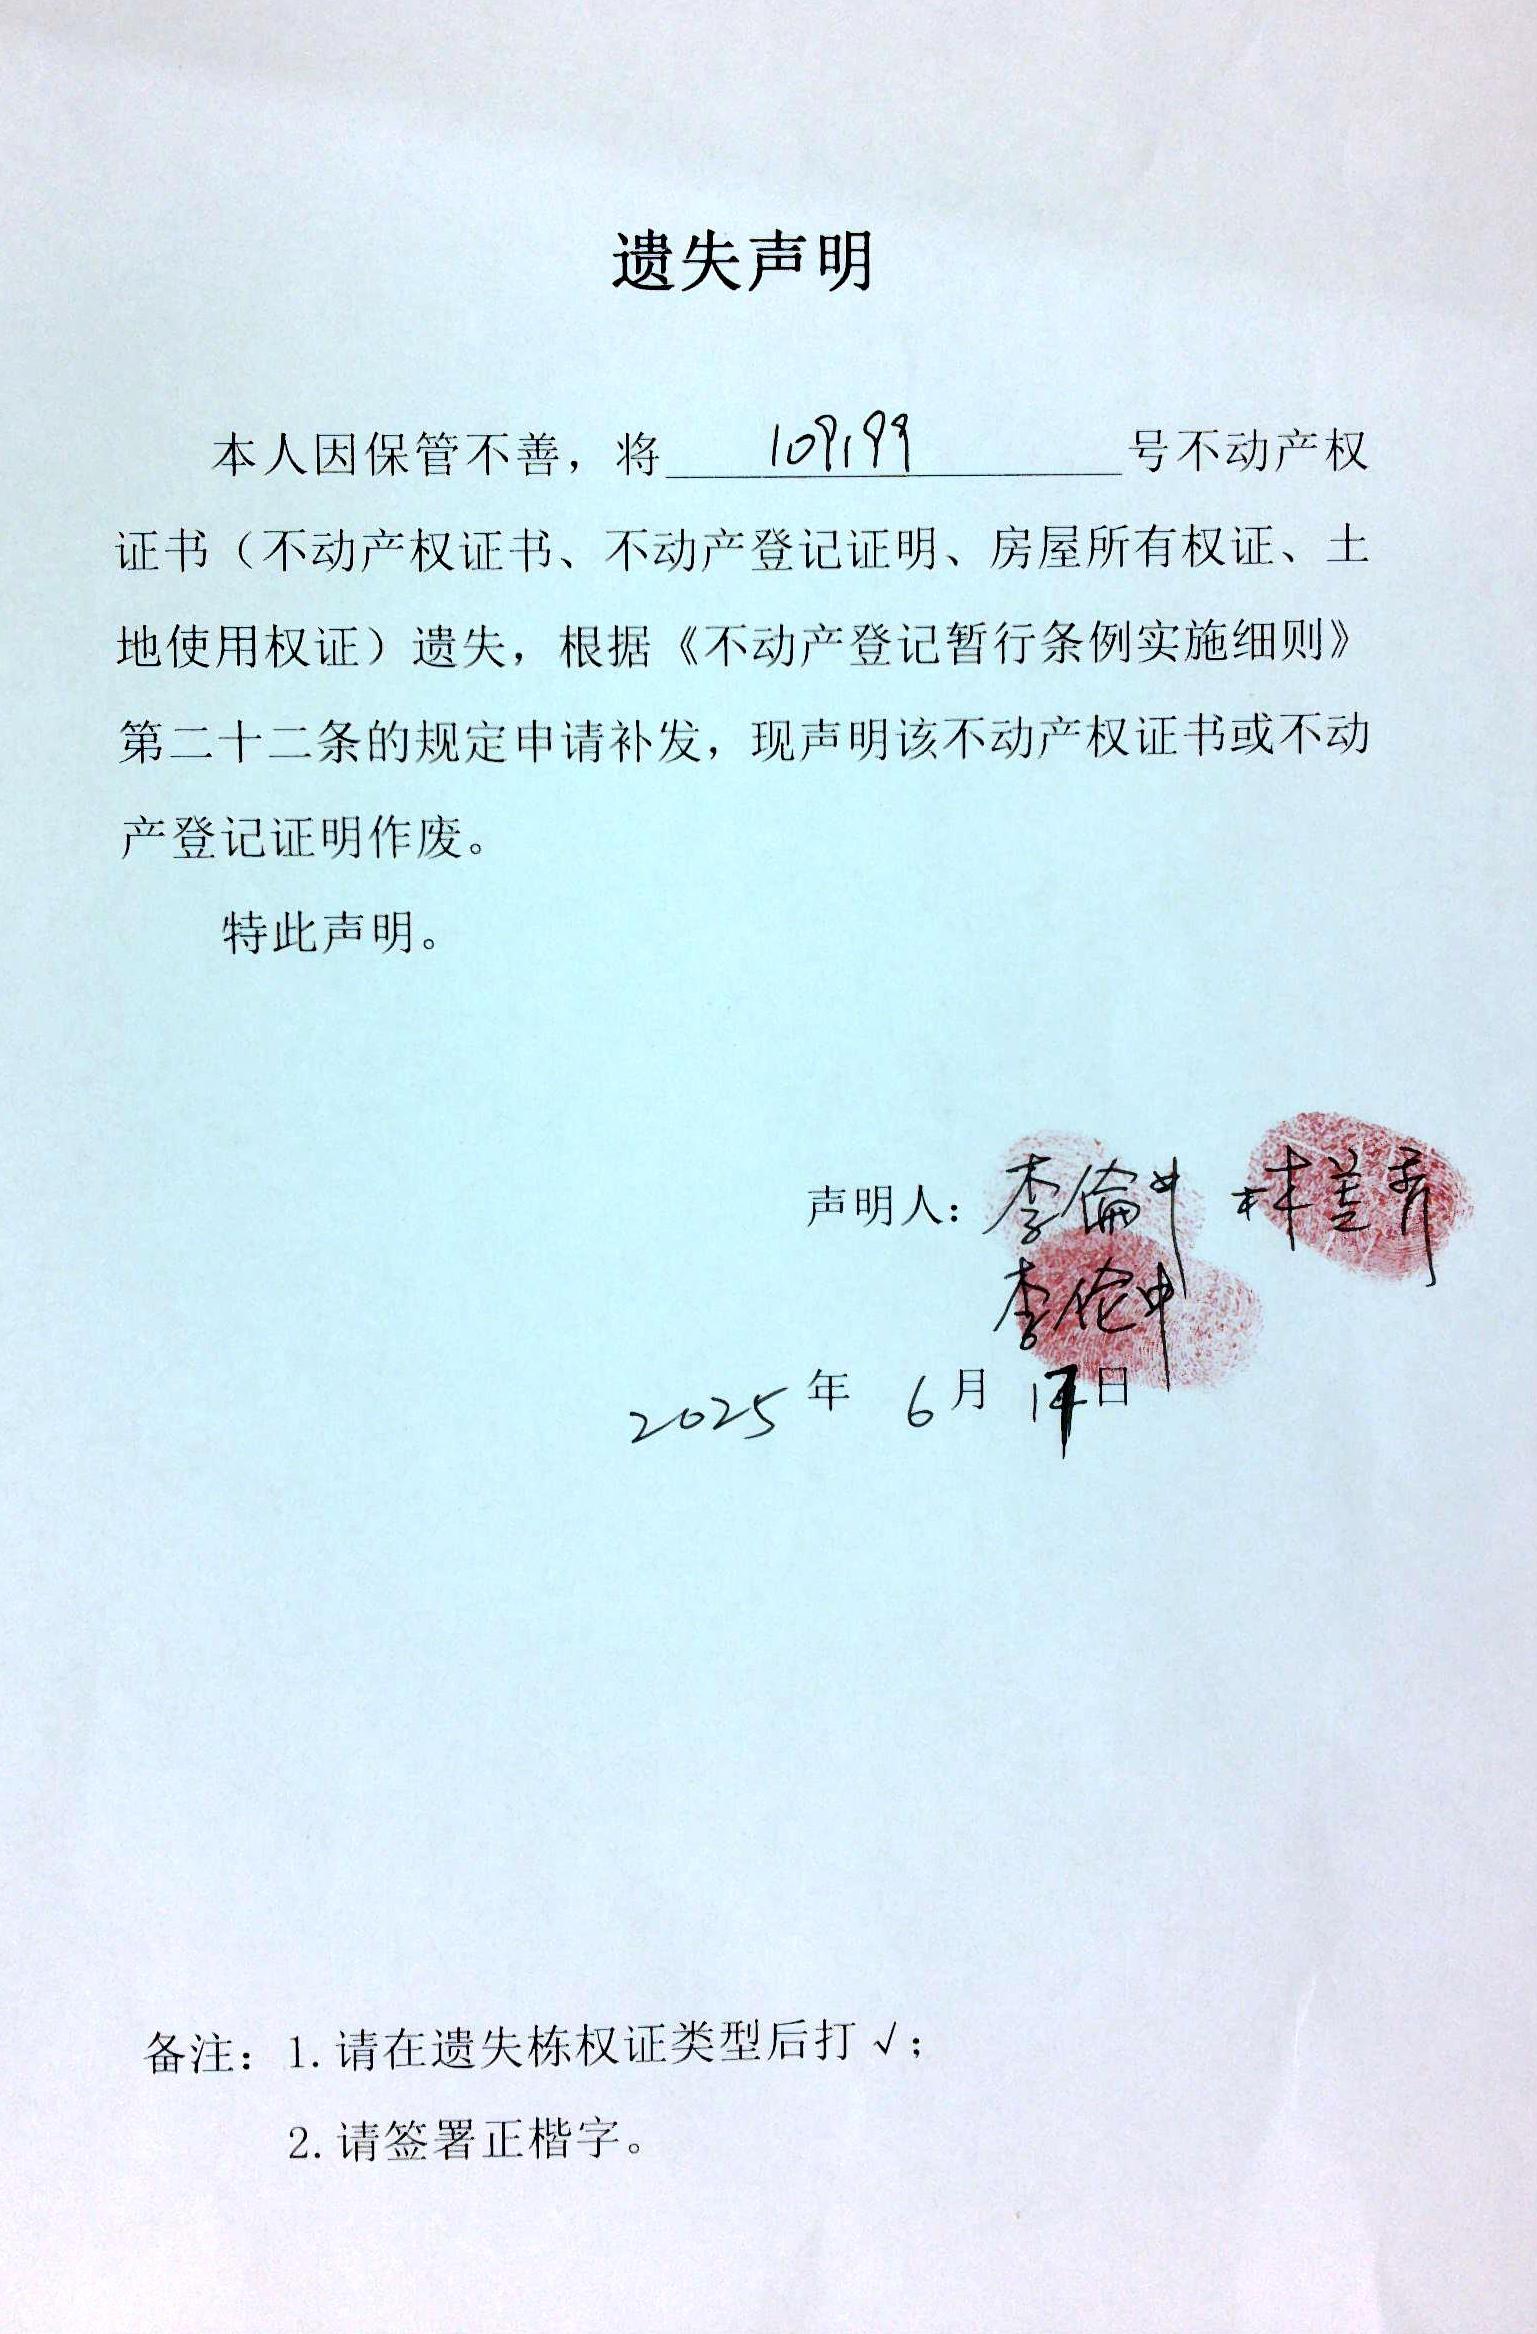 遗失声明
本人因保管不善，将 109199 号不动产权
证书（不动产权证书、不动产登记证明、房屋所有权证、土
地使用权证）遗失，根据《不动产登记暂行条例实施细则》
第二十二条的规定申请补发，现声明该不动产权证书或不动
产登记证明作废。
特此声明。
声明人：李倫中 林兰香
李伦中
2025 年 6 月 17 日
备注：1.请在遗失栋权证类型后打√；
2.请签署正楷字。